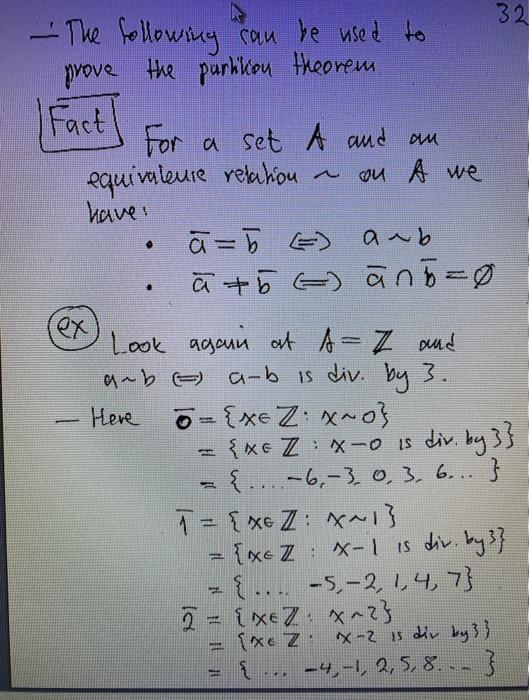 32
— The following can be used to
prove the partition theorem
Fact For a set A and an
equivalence relation ~ on A we
have:
• a̅ = b̅ ⟺ a ~ b
• a̅ ≠ b̅ ⟺ a̅ ∩ b̅ = ∅
ex Look again at A = ℤ and
a~b ⟺ a-b is div. by 3.
— Here 0̅ = {x∈ℤ: x~0}
= {x∈ℤ : x-0 is div. by 3}
= {.... -6, -3, 0, 3, 6... }
1̅ = {x∈ℤ: x~1}
= {x∈ℤ : x-1 is div. by 3}
= {.... -5, -2, 1, 4, 7}
2̅ = {x∈ℤ: x~2}
= {x∈ℤ: x-2 is div by 3}
= { ... -4, -1, 2, 5, 8... }